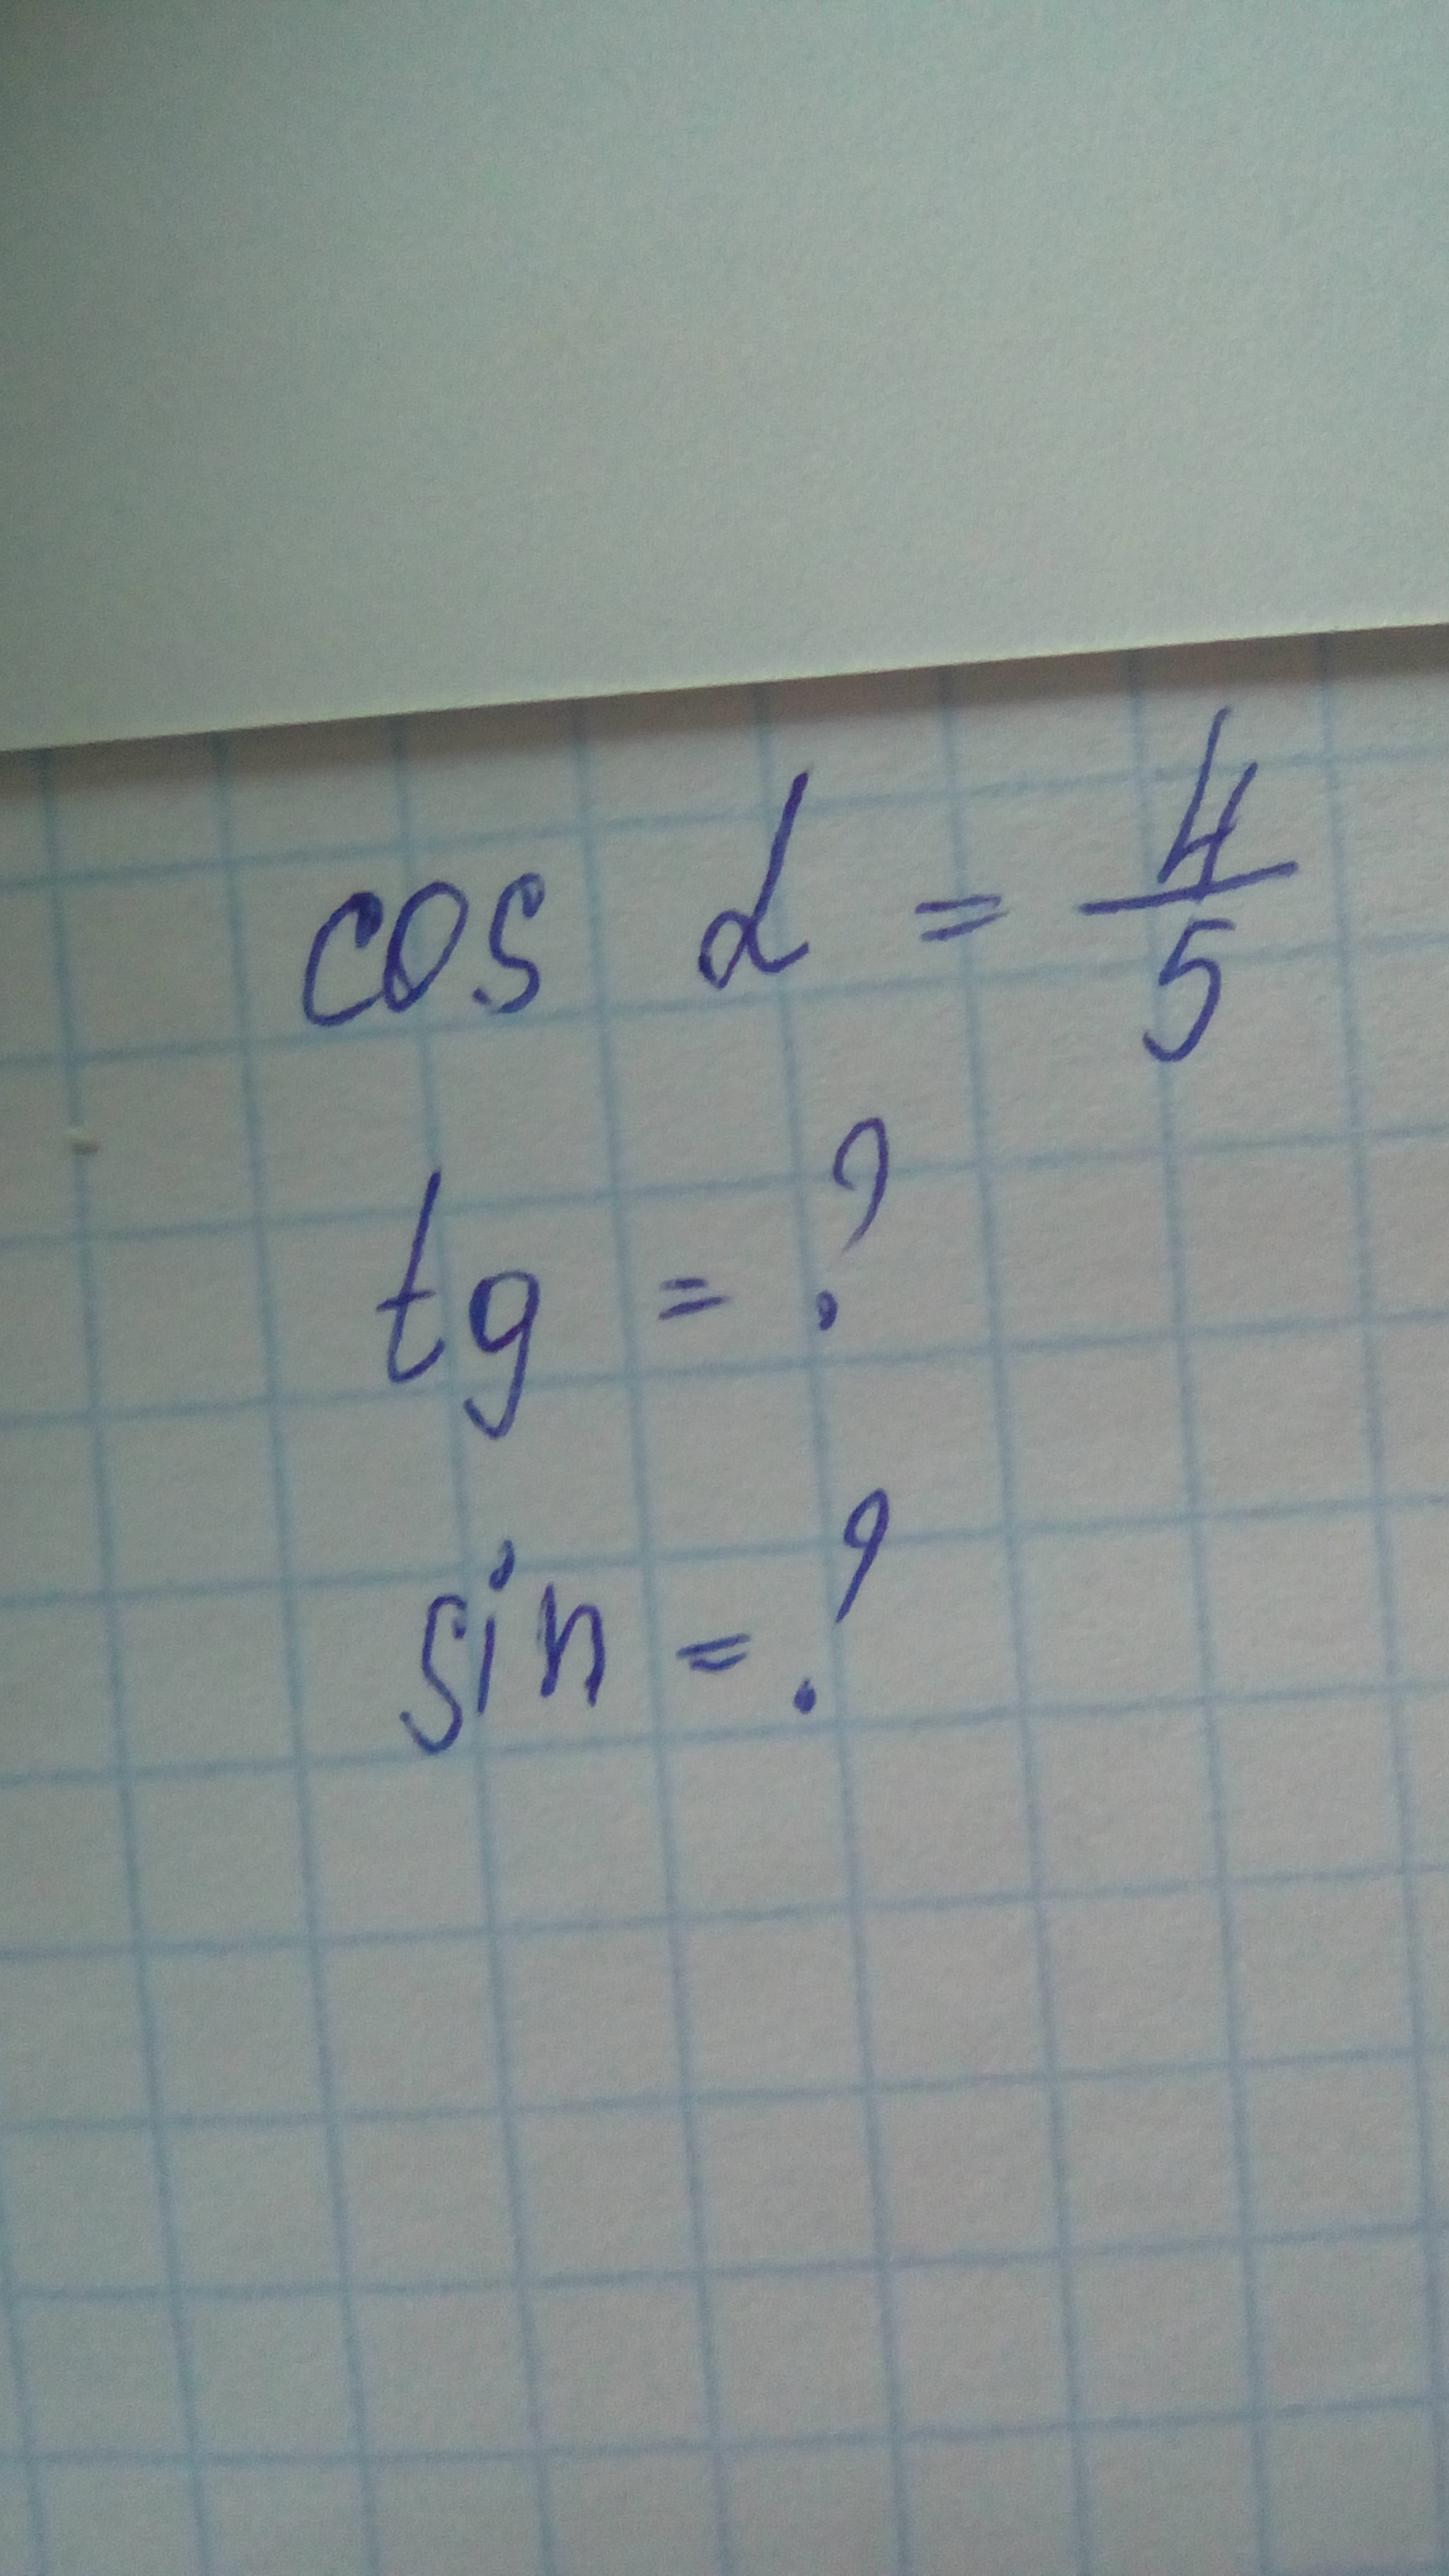 cos α = 4/5
tg = ?
sin = ?